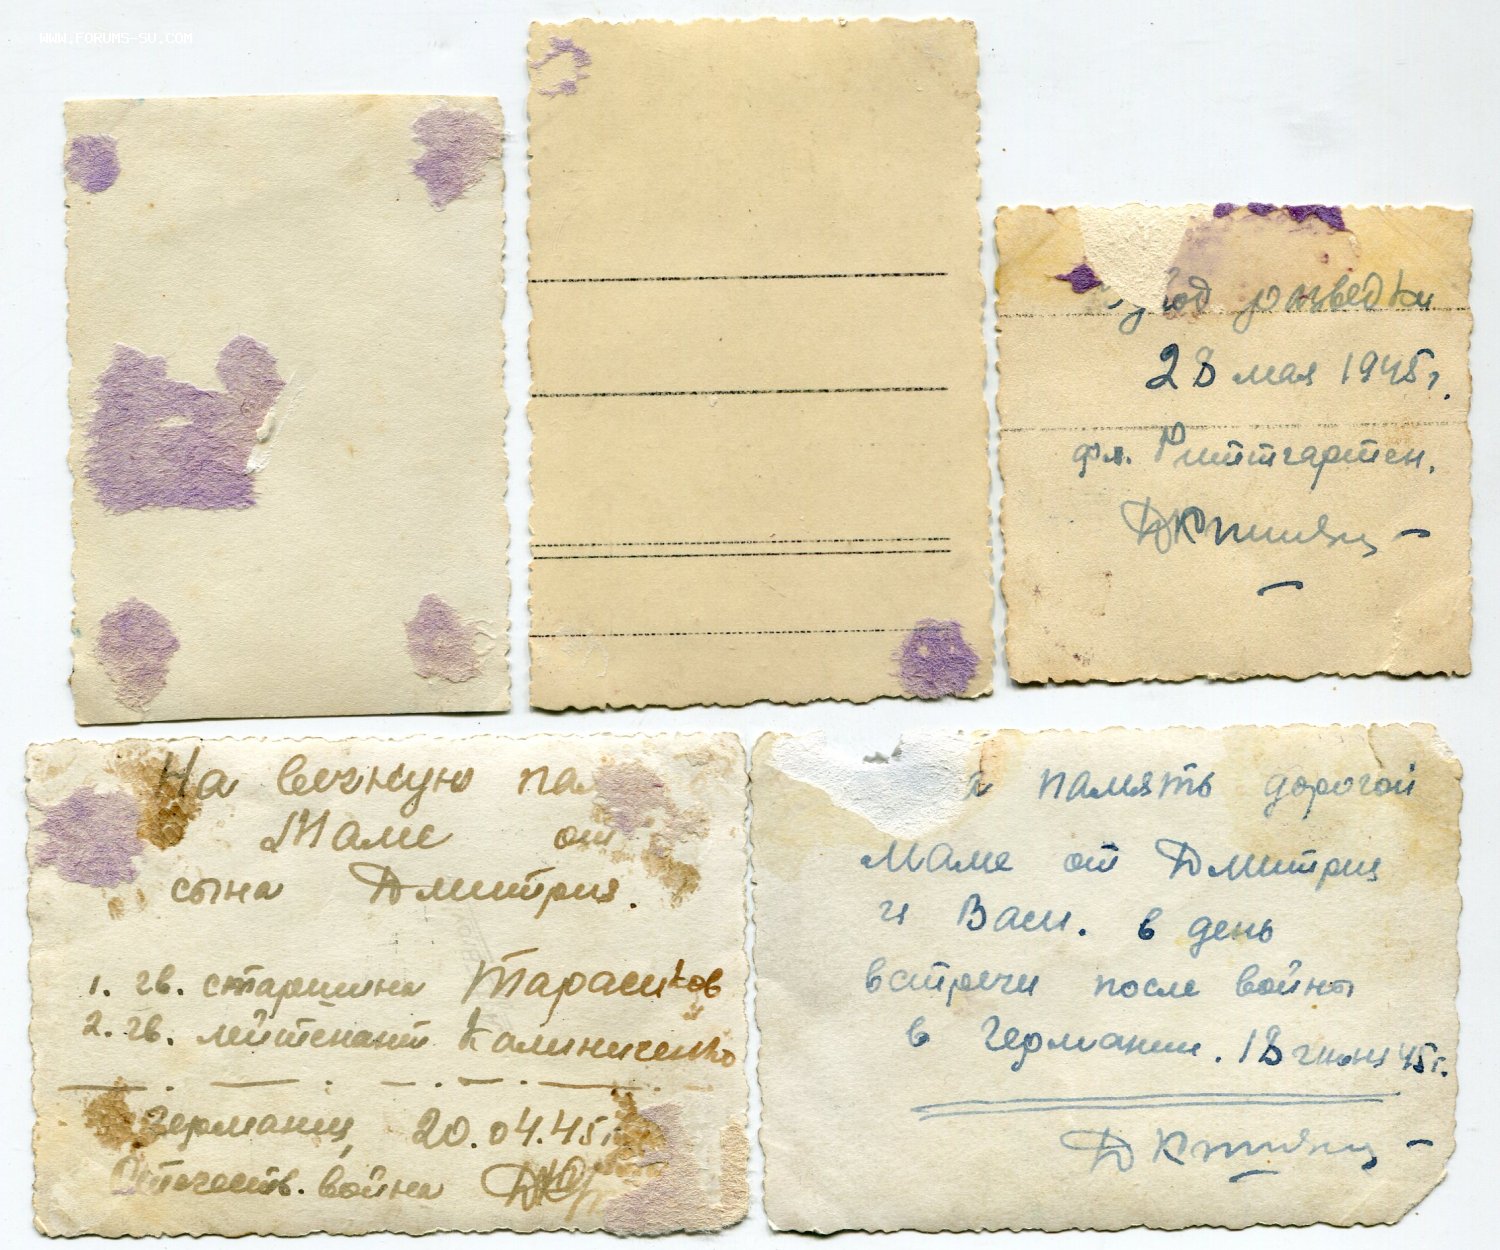 WWW.FORUMS-SU.COM
разведки
28 мая 1945 г.
фл. Риттгартен.
На вечную пам
Маме от
сына Дмитрия.
1. гв. старшина Тарасиков
2. гв. лейтенант Калиниченко
Германия, 20.04.45 г.
Отечеств. война
память дорогой
Маме от Дмитрия
и Васи. в день
встречи после войны
в Германии. 18 июня 45 г.